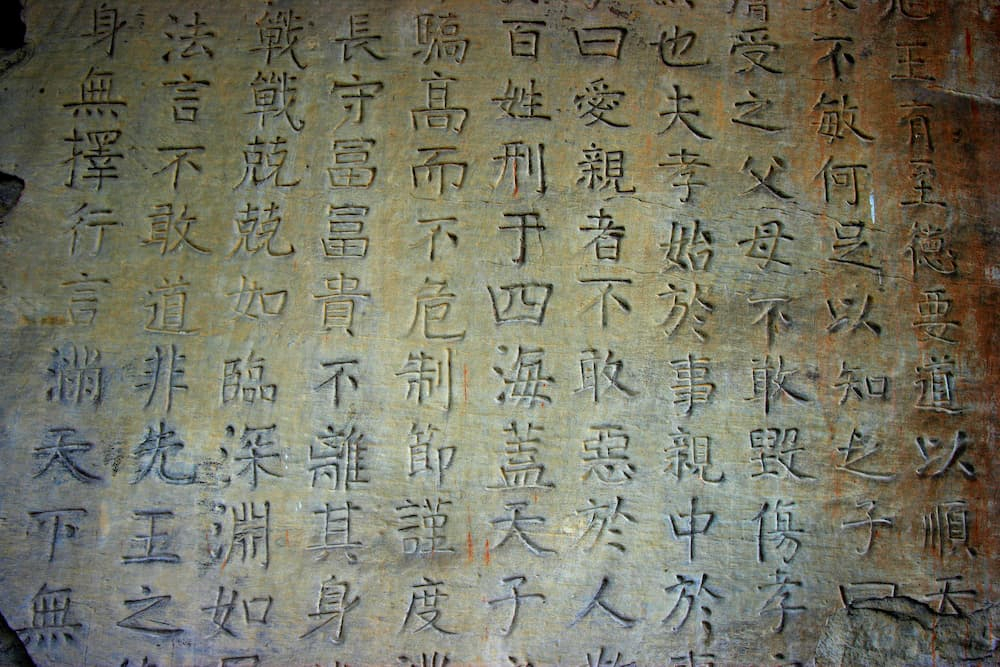 王有至德要道以順天
不敏何足以知之子曰
膚受之父母不敢毀傷孝
也夫孝始於事親中於
曰愛親者不敢惡於人
百姓刑于四海蓋天子
驕髙而不危制節謹度
長守冨冨貴不離其身
戰戰兢兢如臨深淵如
法言不敢道非先王之
身無擇行言滿天下無